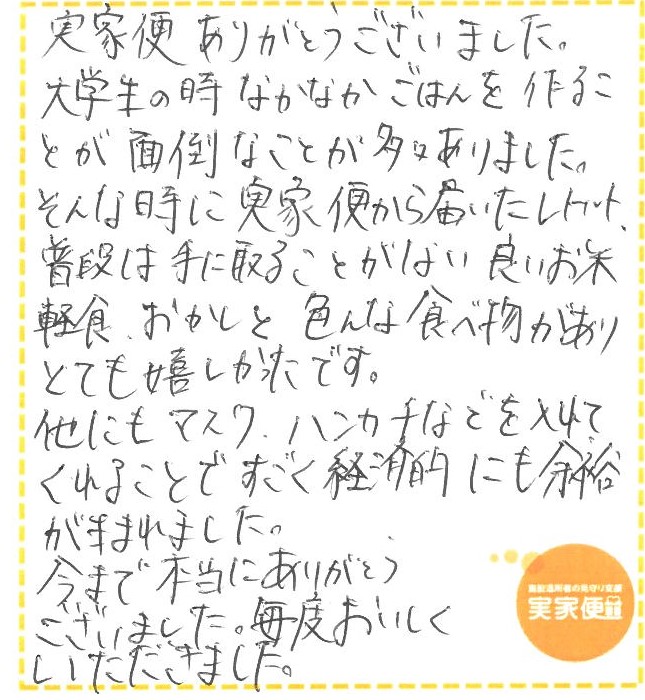 実家便ありがとうございました。
大学生の時なかなかごはんを作るこ
とが面倒なことが多くありました。
そんな時に実家便から届いたレトルト、
普段は手に取ることがない良いお米
軽食、おかしと色んな食べ物があり
とても嬉しかったです。
他にもマスク、ハンカチなどを入れて
くれることですごく経済的にも余裕
が生まれました。
今まで本当にありがとう
ございました。毎度おいしく
いただきました。
実家便